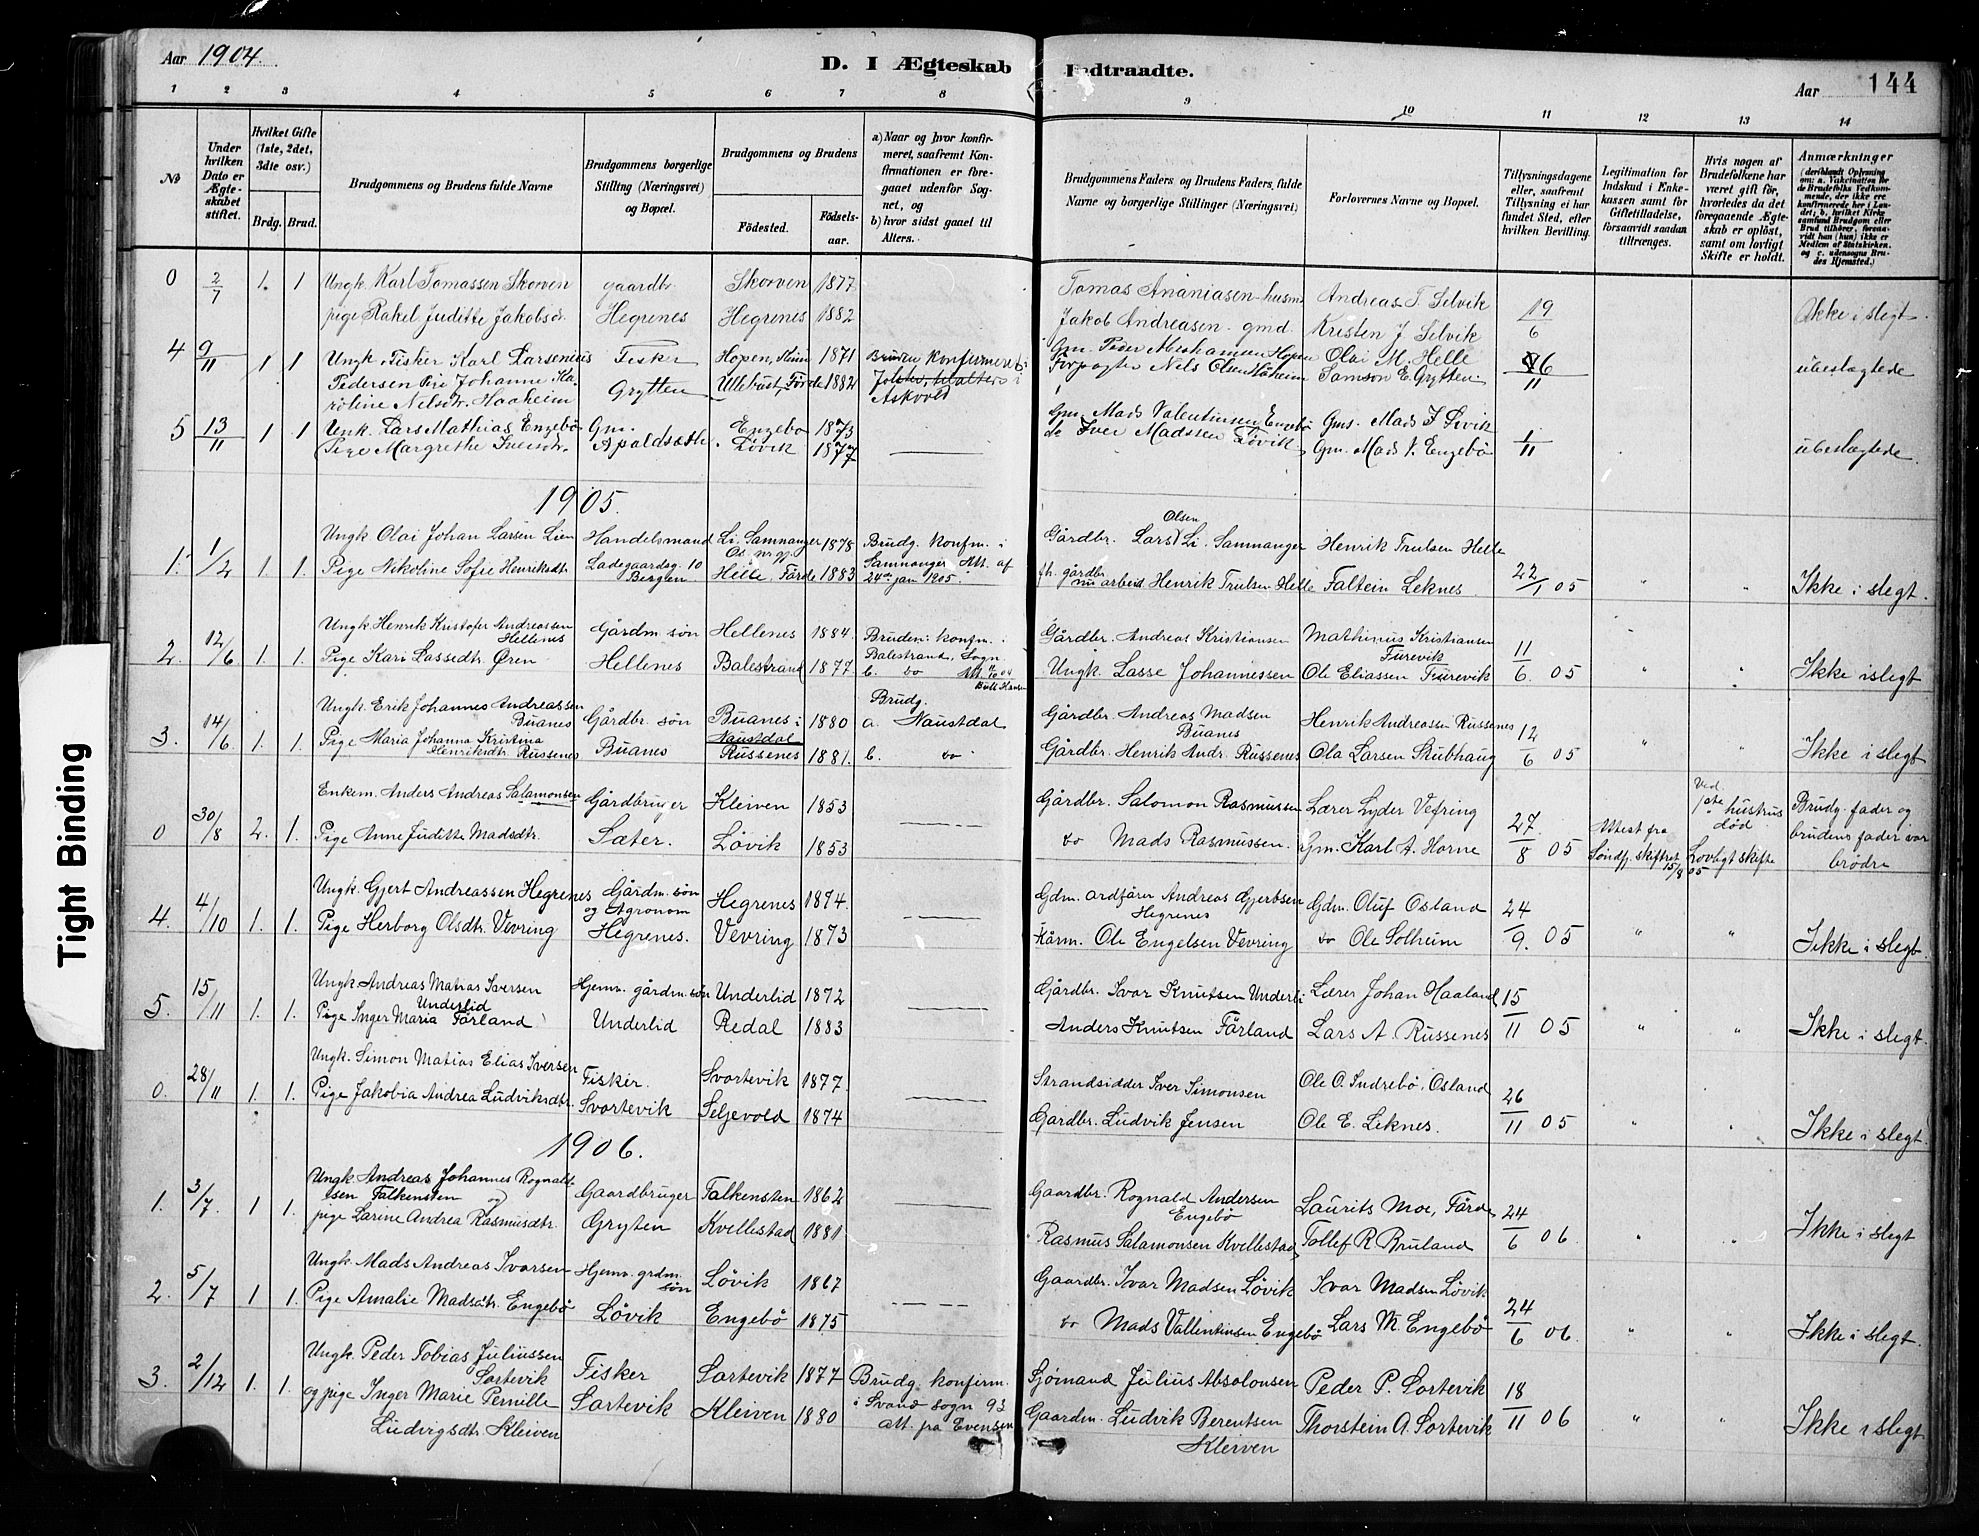 Aar 1904.
D. I Ægteskab Indtraadte.
Aar 144
1 2 3 4 5 6 7 8 9 10 11 12 13 14
No
Under hvilken Dato er Ægteskabet stiftet.
Hvilket Gifte (1ste, 2det, 3die osv.)
Brdg. Brud.
Brudgommens og Brudens fulde Navne
Brudgommens borgerlige Stilling (Næringsvei) og Bopæl.
Brudgommens og Brudens
Fødested.
Fødselsaar.
a) Naar og hvor konfirmeret, saafremt Konfirmationen er foregaaet udenfor Sognet, og
b) hvor sidst gaaet til Alters.
Brudgommens Faders og Brudens Faders, fulde Navne og borgerlige Stillinger (Næringsvei)
Forlovernes Navne og Bopæl.
Tillysningsdagene eller, saafremt Tillysning ei har fundet Sted, efter hvilken Bevilling.
Legitimation for Indskud i Enkekassen samt for Giftetilladelse, forsaavidt saadan tiltrænges.
Hvis nogen af Brudefolkene har været gift før, hvorledes da det foregaaende Ægteskab er opløst, samt om lovligt Skifte er holdt.
Anmærkninger (deriblandt Oplysning om: a. Vakcination for de Brudefolks Vedkommende, der ikke ere konfirmerede her i Landet; b. hvilket Kirkesamfund Brudgom eller Brud tilhører, forsaavidt han (hun) ikke er Medlem af Statskirken. og c. udensogns Brudes Hjemsted.)
0 2/7 1. 1 Ungk. Karl Tomassen Skorven gaardbr. Skorven 1877 Tomas Ananiasen husm Andreas T. Selvik 19/6 Ikke i slegt.
pige Rakel Juditte Jakobsdr. Hegrenes Hegrenes 1882 Jakob Andreasen gmd. Kristen J Selvik
4 9/11 1 1 Ungk. Fisker Karl Larsenius Fisker Hopen, Kinn 1871 Bruden konfirmeret i Gm. Peder Abrahamsen Hopen Olai M. Helle 6/11 ubeslægtede
Pedersen Pie Johanne Ka- Grytten Ulltvust, Førde 1882 Askvold Forpagter Nels Olsen Haaheim Samson E. Grytten
roline Nelsdr. Haaheim
5 13/11 1 1 Unk. Lars Mathias Engebø Gm. Engebø 1873 Gm. Mads Valentinsen Engebø Gm. Mads I Søvik 1/11 ubeslægtede.
Pige Margrethe Iversdr. Apaldsæth Løvik 1877 do Iver Madssen Løvik Gm. Mads V. Engebø
1905.
1. 1/2 1. 1. Ungk Olai Johan Larsen Lien Handelsmand Li, Samnanger 1878 Brudg. konfm. i Gårdbr. Lars Olsen Li, Samnanger Henrik Trulsen Helle
Pige Nikoline Sofie Henriksdtr Ladegaardsg. 10 Bergen Helle, Førde 1883 Samnanger Att. af 24de jan 1905. fh. gårdbr nu arbeid Henrik Trulsen Helle Faltein Leknes 22/1 05 " " Ikke i slegt.
2. 12/6 1. 1. Ungk. Henrik Kristofer Andreassen Hellenes Gårdm. søn Hellenes 1884. Bruden: konfm. i Gårdbr. Andreas Kristiansen Mathinus Kristiansen Furevik
Pige Kari Lassedtr. Øren Hellenes Balestrand 1877 Balestrand, Sogn b. do Ungk. Lasse Johannessen Ole Eliassen Furevik 11/6. 05 " " Ikke i slegt
3. 14/6 1. 1. Ungk. Erik Johannes Andreassen Buanes Gårdbr. søn Buanes i Naustdal 1880 Brudg. a. Naustdal Gårdbr. Andreas Madsen Buanes Henrik Andreassen Russenes
Pige Maria Johanna Kristina Henriksdtr. Russenes Buanes Russenes 1881. b. do Gårdbr. Henrik Andr. Russenes Ola Larsen Stubhaug 12/6 05 " " Ikke i slegt
0 30/8 2. 1. Enkem. Anders Andreas Salamonsen Gårdbruger Kleiven 1853 Gårdbr. Salomon Rasmussen Lærer Lyder Vefring 27/8 05 Attest fra Søndfj. skifteret 15/8 05 Ved 1ste hustrus død Lovligt skifte Brudg. fader og brudens fader var brødre
Pige Anne Juditte Madsdtr. Sæter. Løvik 1853 do Mads Rasmussen. Gm. Karl A. Horne
4. 4/10 1. 1. Ungk. Gjert Andreassen Hegrenes Gårdm. søn og Agronom Hegrenes 1874. Gdm. ordfører Andreas Gjertsen Hegrenes Gdm. Oluf Osland 24/9. 05 " " Ikke i slegt.
Pige Herborg Olsdtr. Vevring Hegrenes. Vevring 1873 Kårm. Ole Engelsen Vevring do Ole Solheim
5. 15/11 1. 1. Ungk. Andreas Matias Iversen Underlid Hjemv. gårdm. søn Underlid 1872 Gårdbr. Ivar Knutsen Underli Lærer Johan Haaland 15/11 05 " " Ikke i slegt.
Pige Inger Maria Førland Underlid Redal 1883 Anders Knutsen Førland Lars A. Russenes
0. 28/11 1. 1. Ungk. Simon Matias Elias Iversen Fisker. Svortevik 1877. Strandsidder Iver Simonsen Ole O. Indrebø, Osland 26/11 05 " " Ikke i slegt.
Pige Jakobia Andrea Ludviksdtr. Svortevik Seljevold 1874 Gardbr. Ludvik Jensen Ole E. Leknes.
1906.
1. 3/7. 1 1. Ungk. Andreas Johannes Rognaldsen Falkensten og Gaardbruger Falkensten 1862 Gaardbr. Rognald Andersen Engebø Laurits Moe, Førde 24/6 06. " " Ikke i slegt
pige Larine Andrea Rasmusdtr. Gryten Kvellestad 1881 Rasmus Salamonsen Kvellestad Tollef R Bruland
2. 5/7 1 1. Ungk. Mads Andreas Ivarsen Hjemv. grdm. søn Løvik 1867 Gaardbr. Ivar Madsen Løvik Ivar Madsen Løvik 24/6 06. " " Ikke i slegt.
Pige Amalie Madsdtr. Engebø Løvik Engebø 1875 do Mads Vallentinsen Engebø Lars M. Engebø
3. 2/12 1. 1. Ungk. Peder Tobias Juliussen Sortevik Fisker Sortevik 1877 Brudg. konfirm. Sjømand Julius Absolonsen Peder P. Sortevik 18/11 06 " " Ikke i slegt
og pige Inger Marie Pernille Sortevik Kleiven 1880 i Svanø sogn 93 Gaardm. Ludvik Berentsen Thorstein A. Sortevik
Ludvigsdtr. Kleiven att. fra Evensen Kleiven
Tight Binding